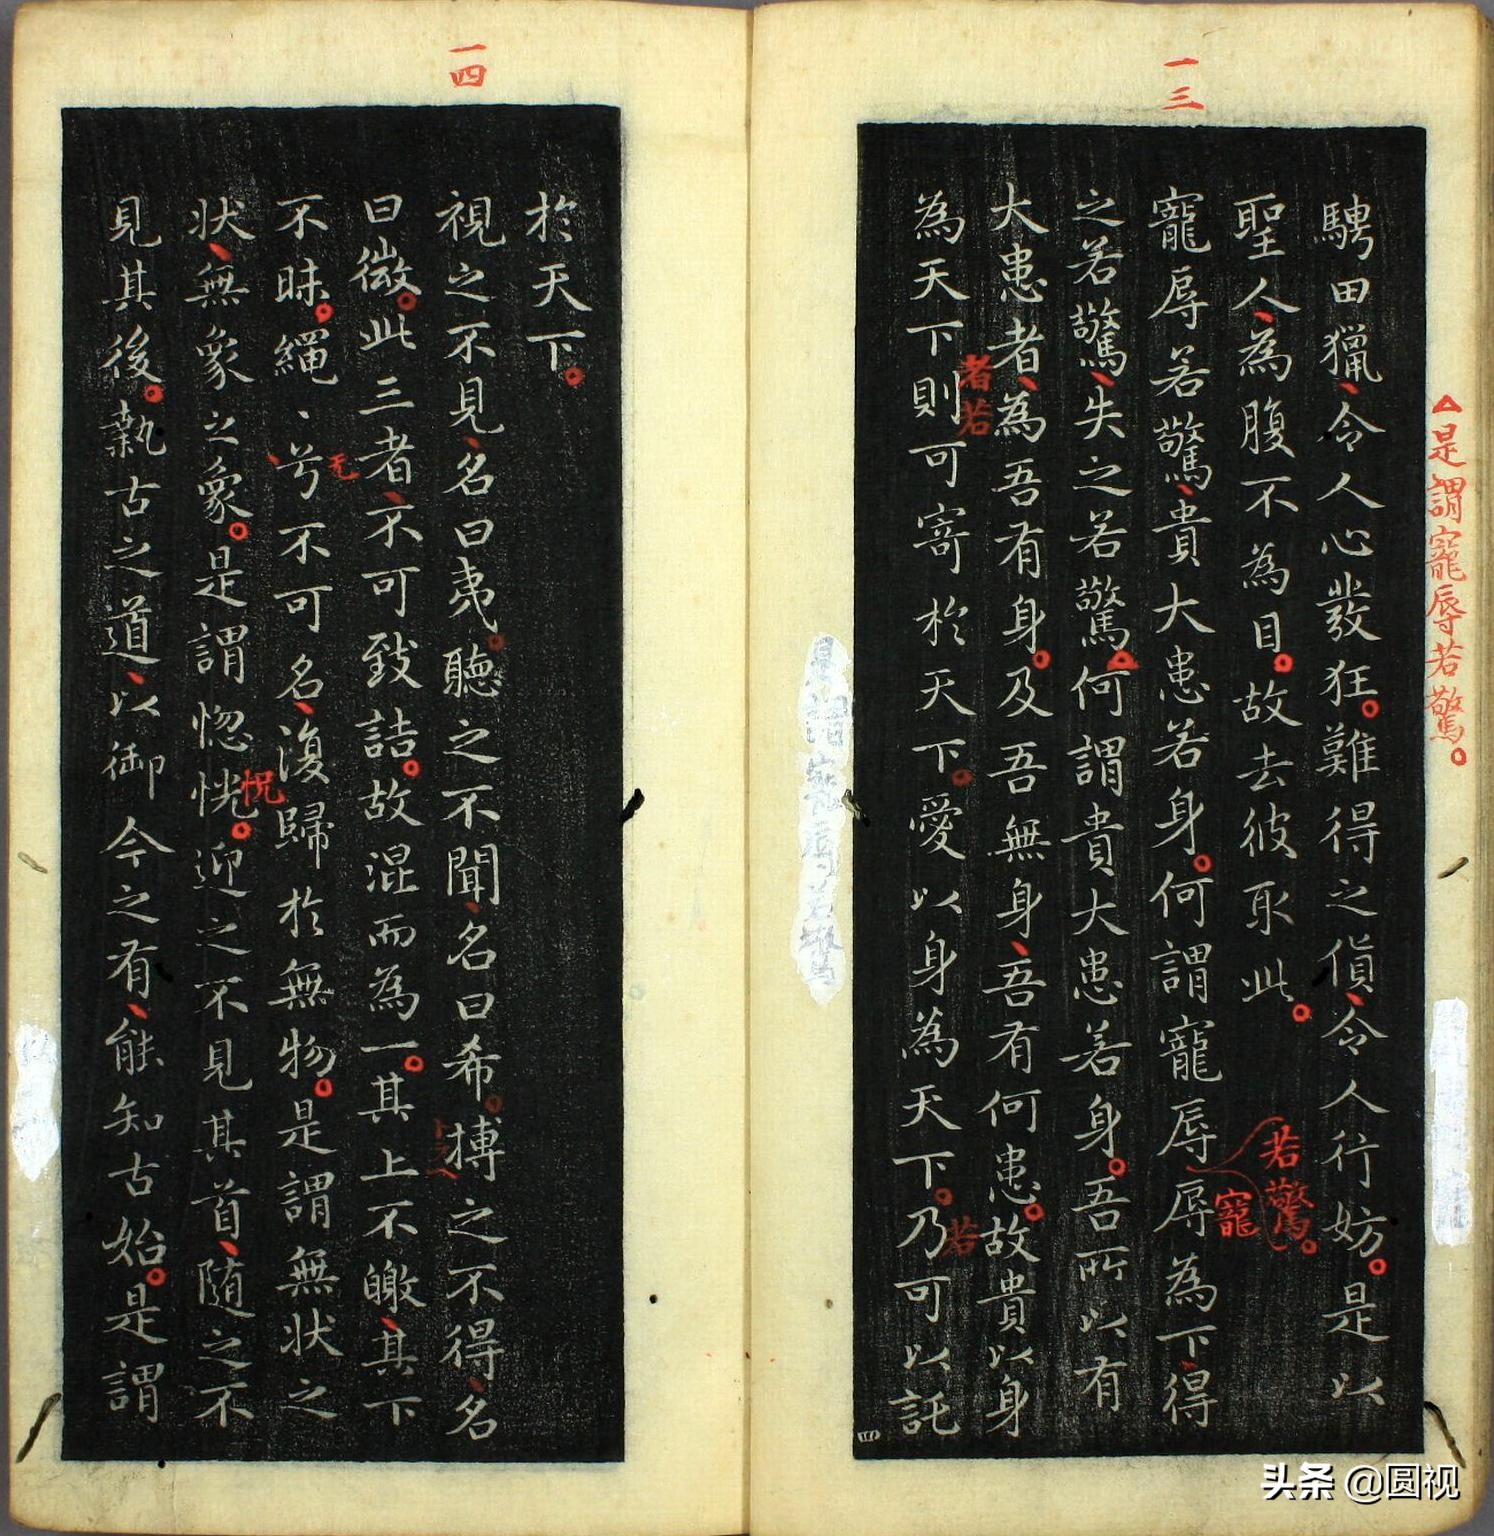 一三
騁田獵、令人心發狂。難得之貨、令人行妨。是以
聖人、為腹不為目。故去彼取此。
寵辱若驚、貴大患若身。何謂寵辱辱為下、得
若驚。
寵
之若驚、失之若驚。何謂貴大患若身。吾所以有
大患者、為吾有身。及吾無身、吾有何患。故貴以身
者若
為天下則可寄於天下。愛以身為天下。乃可以託
若
△是謂寵辱若驚。
是謂寵辱若驚
一四
於天下。
視之不見、名曰夷。聽之不聞、名曰希。搏之不得、名
曰微。此三者、不可致詰。故混而為一。其上不皦、其下
不昧。繩〻兮不可名、復歸於無物。是謂無状之
无
状、無象之象。是謂惚恍。迎之不見其首、隨之不
怳
見其後。執古之道、以御今之有、能知古始。是謂
头条 @圆视